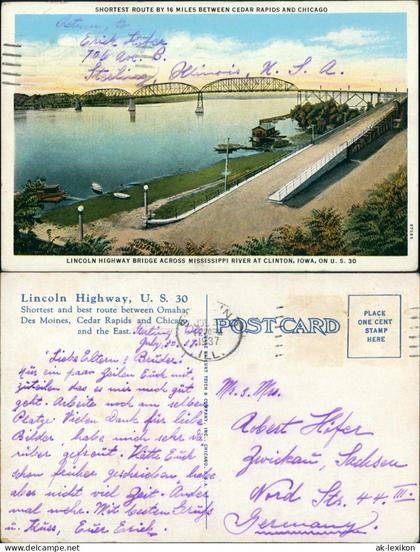 SHORTEST ROUTE BY 16 MILES BETWEEN CEDAR RAPIDS AND CHICAGO
Return to
Erick Höfer
706 Ave. B.
Sterling, Illinois, U. S. A.
LINCOLN HIGHWAY BRIDGE ACROSS MISSISSIPPI RIVER AT CLINTON, IOWA, ON U. S. 30
Lincoln Highway, U. S. 30
Shortest and best route between Omaha,
Des Moines, Cedar Rapids and Chicago
and the East.
Sterling, Ill.
July, 30. 37.
1937
ILL.
POST CARD
PLACE
ONE CENT
STAMP
HERE
Liebe Eltern & Brüder.
Nur ein paar Zeilen Euch mit,
zuteilen das es mir noch gut
geht. Arbeite noch am selben
Platze. Vielen Dank für liebe
Bilder, habe mich sehr da,
rüber gefreut. Hätte Euch
schon früher geschrieben, habe
aber nicht viel Zeit. Ander
mal mehr. Mit besten Grüß
u. Küss, Euer Erick.
M. & Mrs.
Robert Höfer
Zwickau, Sachsen
Nord Str. 44 III.
Germany.
© ak-lexikon